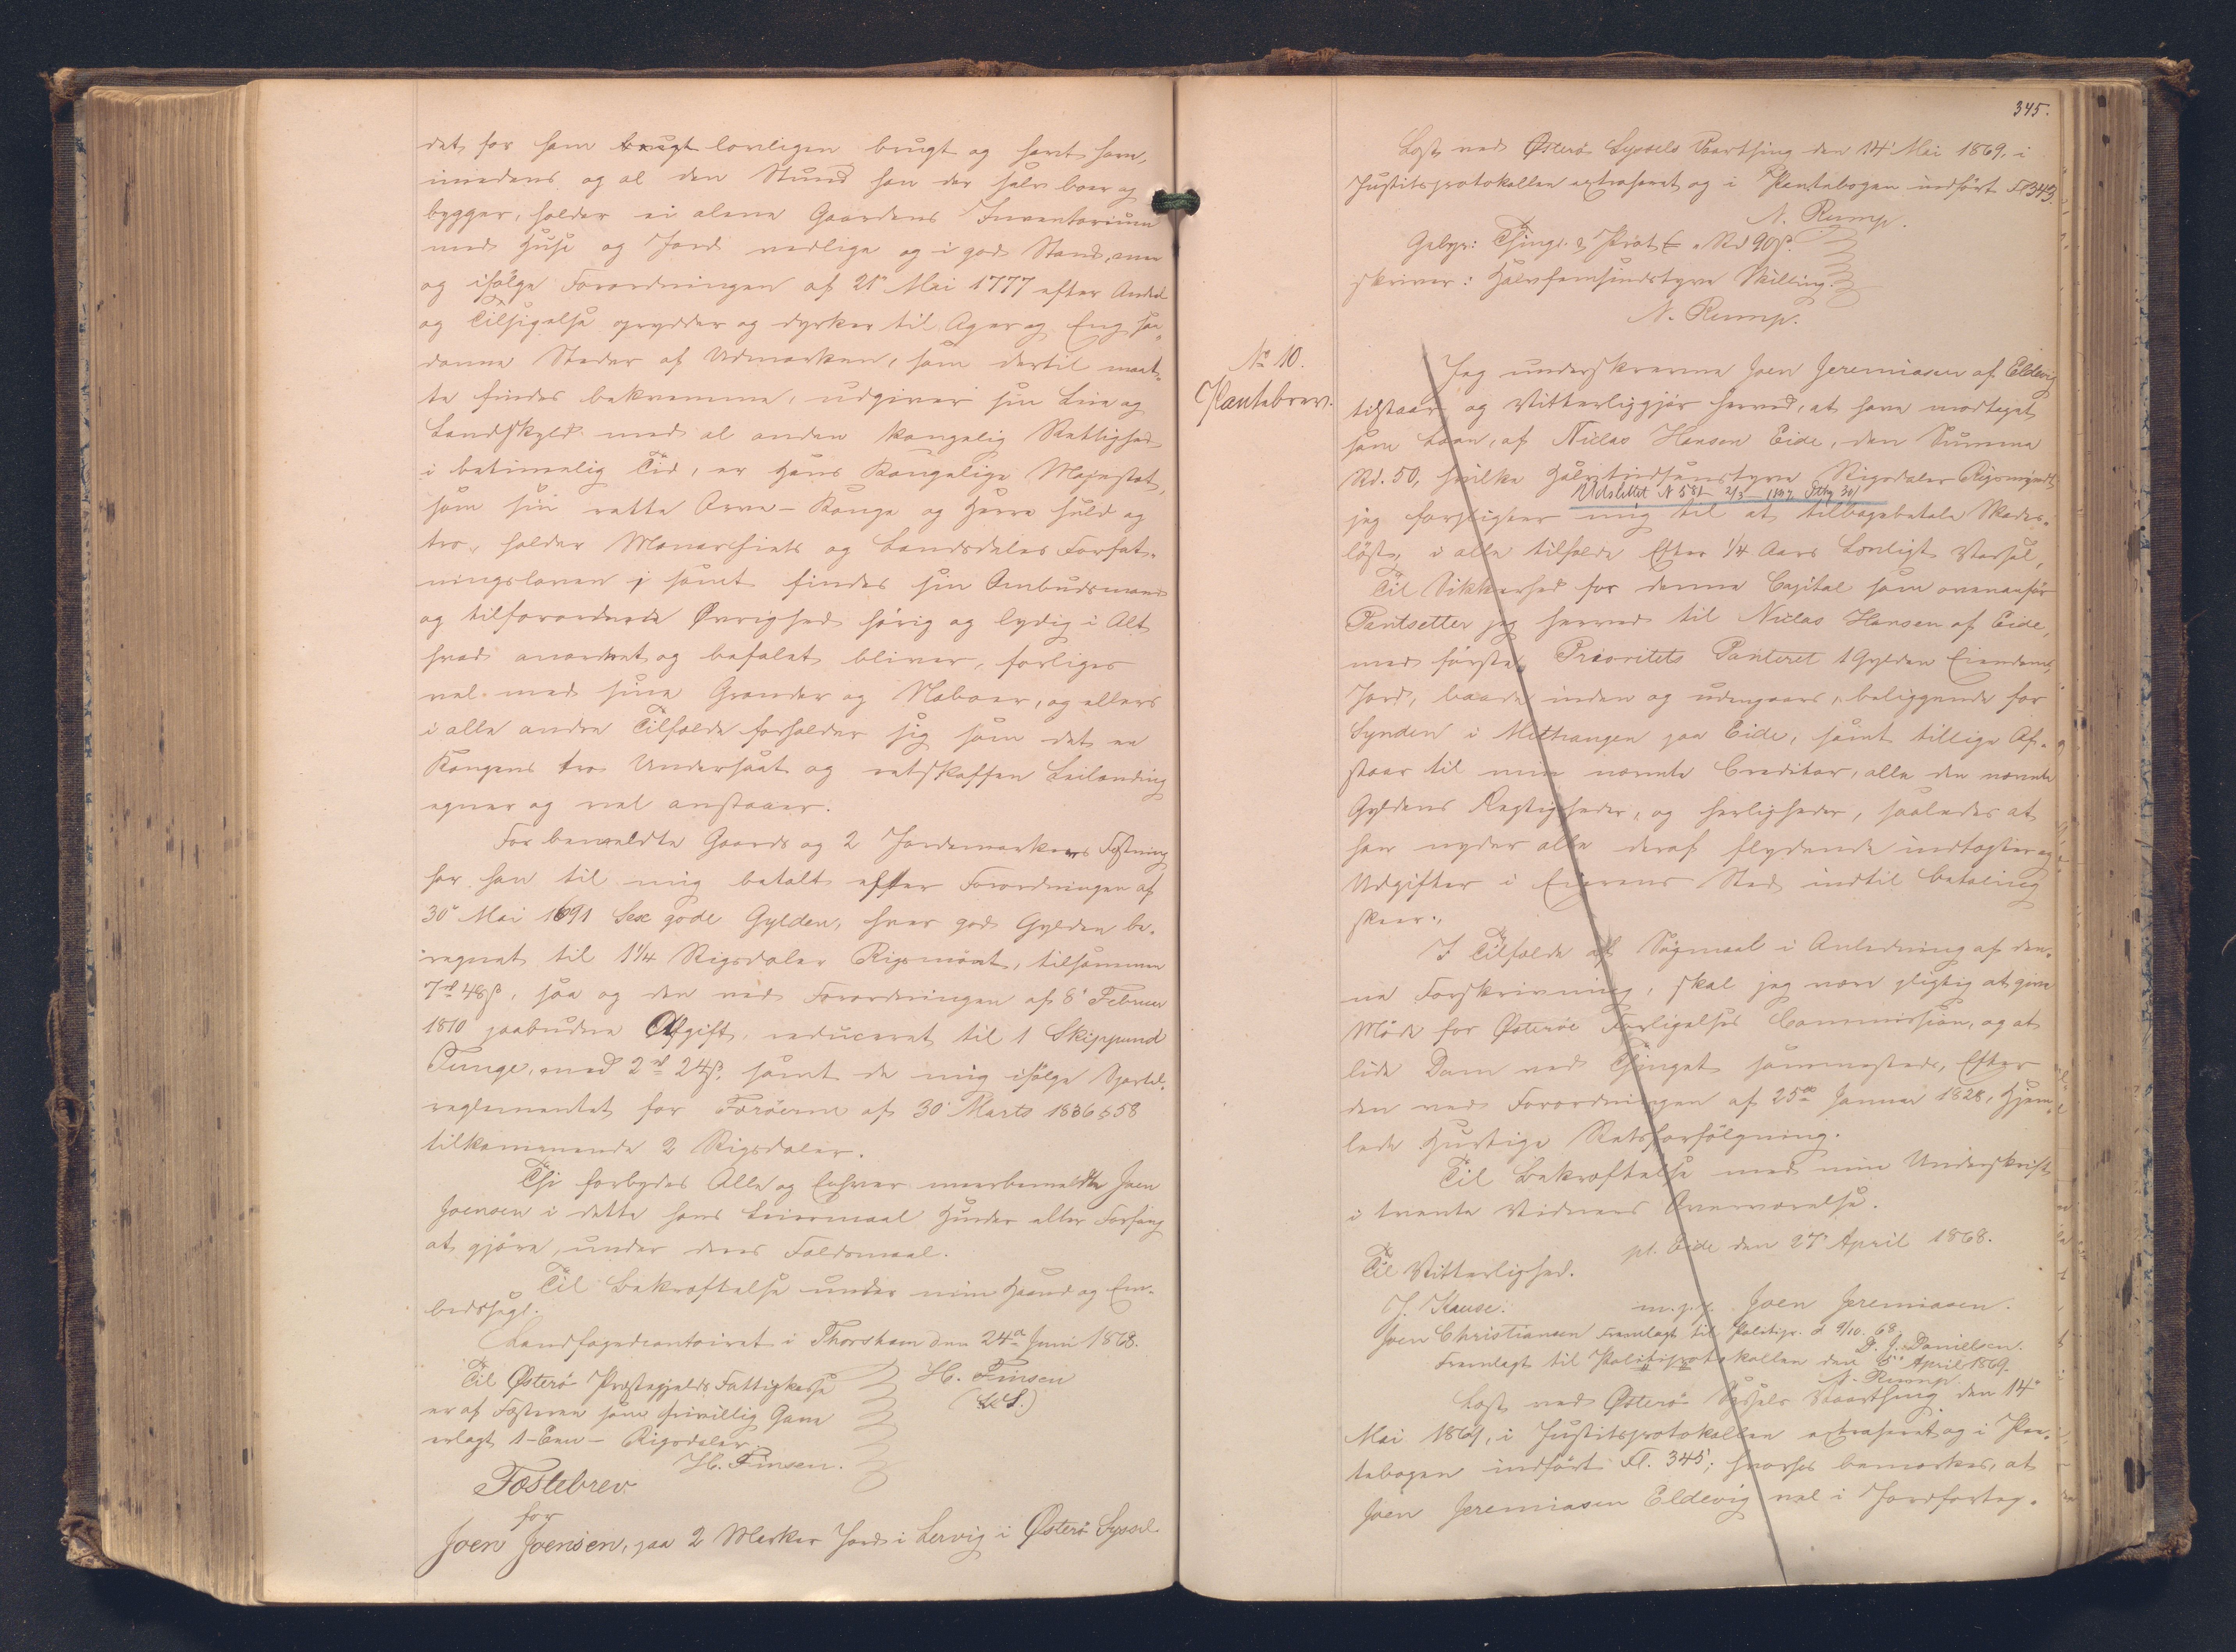 det før ham brugt lovligen brugt og havt have,
imedens og al den Stund han der selv boer og
bygger, holder ei alene Gaardens Inventarium
med Huse og Jord vedlige og i god Stand, men
og ifølge Forordningen af 21 Mai 1777 efter Anvisn
og Tilsigelse oprydder og dyrker til Ager og Eng saa-
danne Steder af Udmarken, som dertil maat-
te findes bekvemme, udgiver sin Leie og
Landskyld med al anden kongelig Rettighed
i betimelig Tid, er Hans Kongelige Majestæt,
som sin rette Arve-Konge og Herre huld og
tro, holder Monarchiets og Landsdelens Forfat-
ningsloven i samt findes sin Ombudsmand
og tilforordnede Øvrighed hørig og lydig i Alt
hvad anordnet og befalet bliver, forliges
vel med sine Grander og Naboer, og ellers
i alle andre Tilfælde forholder sig som det en
Kongens tro Undersaat og retskaffen Leilænding
egner og vel anstaaer.
For bemeldte Gaards og 2 Jordemarkers Fæstning
har han til mig betalt efter Forordningen af
30 Mai 1691 Sex gode Gylden, hver god Gylden be-
regnet til 1 1/4 Rigsdaler Rigsmønt, tilsammen
7rd 48ß, saa og den ved Forordningen af 8 Februar
1810 paabudne Afgift, reduceret til 1 Skippund
Tunge, med 2rd 24ß, samt de mig ifølge Sportel-
reglementet for Færøerne af 30 Marts 1836 § 58
tilkommende 2 Rigsdaler.
Thi forbydes Alle og Enhver meerbemeldte Joen
Joensen i dette hans Leiermaal Hinder eller Forfang
at gjøre, under deres Faldsmaal.
Til Bekræftelse under min Haand og Em-
bedssegl.
Landfogedcontoiret i Thorshavn den 24de Juni 1868.
H. Finsen
(L.S.)
Til Østerø Præstegjelds Fattigkasse
er af Fæsteren som frivillig Gave
erlagt 1-Een- Rigsdaler.
H. Finsen.
Fæstebrev
for
Joen Joensen, paa 2 Marker Jord i Lervig i Østerø Syssel
345.
Læst ved Østerø Syssels Vaarthing den 14 Mai 1869, i
Justitsprotokollen extraheret og i Pantebogen indført Fl 343.
N. Rump.
Gebyr: Thingl. & Prot. Rd 90ß.
skriver: Halvfemsindstyve Skilling.
N. Rump.
No 10.
Pantebrev.
Jeg underskrevne Joen Jeremiasen af Eldevig
tilstaar og Vitterliggjør herved, at have modtaget
som Laan, af Niclas Hansen Eide, den Summa
Rd. 50, hvilke Halvtredsindstyve Rigsdaler Rigsmynt
Udslettet N 581 2/3 1897 Ptbg 30
jeg forpligter mig til at tilbagebetale Skades-
løst, i alle tilfælde Efter 1/4 Aars Lovligt Varsel,
Til Sikkerhed for denne Capital som ovenanfør
Pantsetter jeg herved til Niclas Hansen af Eide,
med første Prioritets Panteret 1 Gylden Eiendoms,
Jord, baade inden og udengaars, beliggende for
Synden i Mittrangen paa Eide, samt tillige Af-
staar til min nævnte Creditor, alle den nævnte
Gyldens Rægtigheder, og herligheder, saaledes at
han nyder alle deraf flydende indtægter og
Udgifter i Eierens Sted indtil betaling
skeer.
I Tilfælde af Søgmaal i Anledning af den-
ne Forskrivning, skal jeg være pligtig at give
Møde for Østerøe Forligelses Commission, og at
lide Dom ved Thinget sammesteds, Efter
den ved Forordningen af 25de Januar 1828, Hjem-
lede Hurtige Retsforfølgning.
Til Bekræftelse med min Underskrift
i tvente Vidners Overværelse.
pt. Eide den 27 April 1868.
Til Vitterlighed.
J. Kruse. m.p.p. Joen Jeremiasen.
Joen Christiansen Fremlagt til Politipr. d 9/10 68.
D. J. Danielsen.
Fremlagt til Politiprotokollen den April 1869.
N. Rump.
Læst ved Østerø Syssels Vaarthing den 14
Mai 1869, i Justitsprotokollen extraheret og i Pan-
tebogen indført Fl. 345; hvorhos bemærkes, at
Joen Jeremiasen Eldevig vel i Jordforteg-